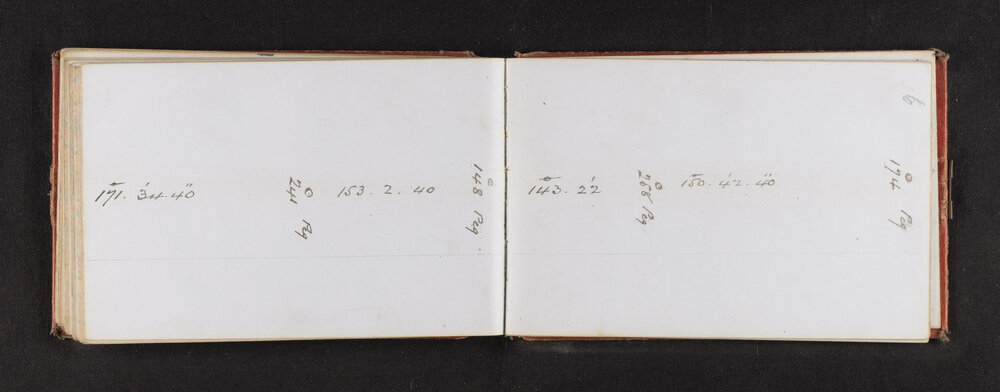 171°. 34'. 40"
241° Pg
153. 2. 40
148° Pg
143°. 22'
258° Pg
150°. 42'. 40"
174° Pg
6